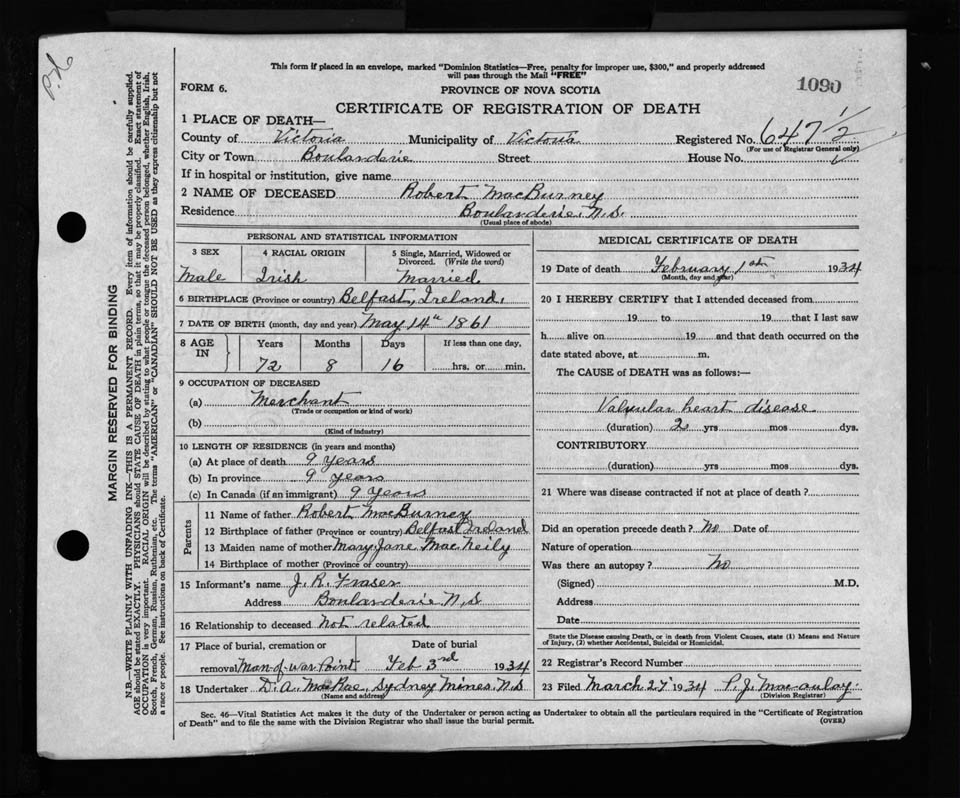 P.N
MARGIN RESERVED FOR BINDING
N.B.—WRITE PLAINLY WITH UNFADING INK—THIS IS A PERMANENT RECORD. Every item of information should be carefully supplied.
AGE should be stated EXACTLY. PHYSICIANS should STATE CAUSE OF DEATH in plain terms, so that it may be properly classified. Exact statement of
OCCUPATION is very important. RACIAL ORIGIN will be described by stating to what people or tongue the deceased person belonged, whether English, Irish,
Scotch, French, German, Russian, Ruthenian, etc. The terms "AMERICAN" or "CANADIAN" SHOULD NOT BE USED as they express citizenship but not
a race or people. See instructions on back of Certificate.
This form if placed in an envelope, marked "Dominion Statistics—Free, penalty for improper use, $300," and properly addressed
will pass through the Mail "FREE"
FORM 6. PROVINCE OF NOVA SCOTIA 1090
CERTIFICATE OF REGISTRATION OF DEATH
1 PLACE OF DEATH—
County of Victoria Municipality of Victoria Registered No. 647 1/2
(For use of Registrar General only)
City or Town Boularderie Street House No.
If in hospital or institution, give name
2 NAME OF DECEASED Robert MacBurney
Residence Boularderie, N.S.
(Usual place of abode)
PERSONAL AND STATISTICAL INFORMATION
3 SEX 4 RACIAL ORIGIN 5 Single, Married, Widowed or
Divorced. (Write the word)
Male Irish Married
6 BIRTHPLACE (Province or country) Belfast, Ireland.
7 DATE OF BIRTH (month, day and year) May 14th 1861
8 AGE IN Years Months Days If less than one day,
72 8 16 hrs. or min.
9 OCCUPATION OF DECEASED
(a) Merchant
(Trade or occupation or kind of work)
(b)
(Kind of industry)
10 LENGTH OF RESIDENCE (in years and months)
(a) At place of death 9 years
(b) In province 9 years
(c) In Canada (if an immigrant) 9 years
Parents
11 Name of father Robert MacBurney
12 Birthplace of father (Province or country) Belfast Ireland
13 Maiden name of mother Mary Jane MacNeily
14 Birthplace of mother (Province or country)
15 Informant's name J. R. Fraser
Address Boularderie N.S
16 Relationship to deceased not related
17 Place of burial, cremation or Date of burial
removal Man-of-war Point Feb 3rd 1934
18 Undertaker D. A. MacRae, Sydney Mines, N.S
(Name and address)
MEDICAL CERTIFICATE OF DEATH
19 Date of death February 1st 1934
(Month, day and year)
20 I HEREBY CERTIFY that I attended deceased from
19 to 19 that I last saw
h alive on 19 and that death occurred on the
date stated above, at m.
The CAUSE of DEATH was as follows:—
Valvular heart disease
(duration) 2 yrs mos dys.
CONTRIBUTORY
(duration) yrs mos dys.
21 Where was disease contracted if not at place of death?
Did an operation precede death? No Date of
Nature of operation
Was there an autopsy? No
(Signed) M.D.
Address
Date
State the Disease causing Death, or in death from Violent Causes, state (1) Means and Nature
of Injury, (2) whether Accidental, Suicidal or Homicidal.
22 Registrar's Record Number
23 Filed March 27 1934 P. J. Macaulay.
(Division Registrar)
Sec. 46—Vital Statistics Act makes it the duty of the Undertaker or person acting as Undertaker to obtain all the particulars required in the "Certificate of Registration
of Death" and to file the same with the Division Registrar who shall issue the burial permit. (OVER)